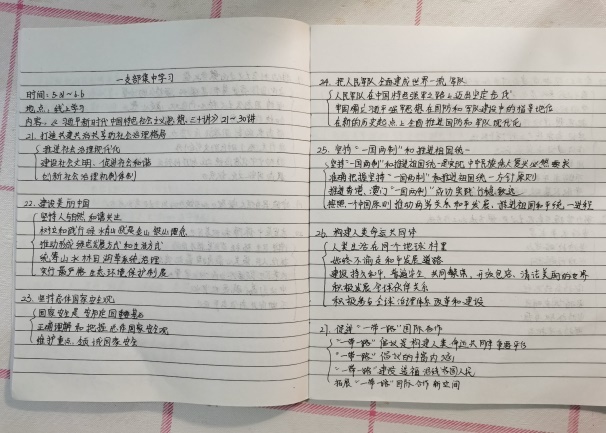 一支部集中学习
时间：5.31~6.6
地点：线上学习
内容：《习近平新时代中国特色社会主义思想三十讲》21~30讲
21. 打造共建共治共享的社会治理格局
推进社会治理现代化
建设社会文明、促进社会和谐
创新社会治理机制体制
22. 建设美丽中国
坚持人与自然和谐共生
树立和践行绿水青山就是金山银山理念
推动形成绿色发展方式和生活方式
统筹山水林田湖草系统治理
实行最严格生态环境保护制度
23. 坚持总体国家安全观
国家安全是
正确理解和把握总体国家安全观
维护重点领域国家安全
24. 把人民军队全面建成世界一流军队
人民军队在中国特色强军之路上迈出坚定步伐
牢固确立习近平强军思想在国防和军队建设中的指导地位
在新的历史起点上全面推进国防和军队现代化
25. 坚持"一国两制"和推进祖国统一
坚持"一国两制"和推进祖国统一是实现中华民族伟大复兴必然要求
准确把握坚持"一国两制"和推进祖国统一方针原则
推进香港、澳门"一国两制"成功实践行稳致远
按照一个中国原则推动两岸关系和平发展、推进祖国和平统一进程
26. 构建人类命运共同体
人类生活在同个地球村里
始终不渝走和平发展道路
建设持久和平、普遍安全、共同繁荣、开放包容、清洁美丽的世界
积极发展全球伙伴关系
积极参与全球治理体系改革和建设
27. 促进"一带一路"国际合作
"一带一路"倡议是构建人类命运共同体重要平台
"一带一路"倡议的丰富内涵
"一带一路"建设造福沿线各国人民
拓展"一带一路"国际合作新空间